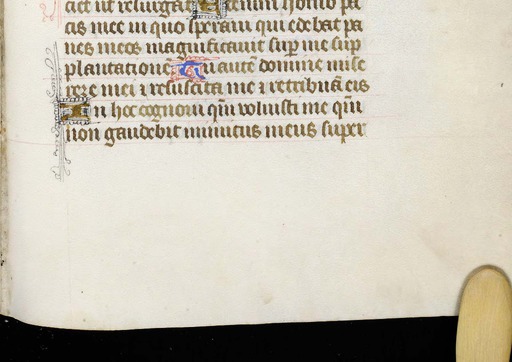 ciet ut resurgat Etenim homo pa
cis mee in quo speraui qui edebat pa
nes meos magnificauit sup me sup
plantationē Tu autē domine mise
rere mei ⁊ resuscita me ⁊ retribuā eis
In hoc cognoui qm̄ voluisti me qm̄
non gaudebit inimicus meus super